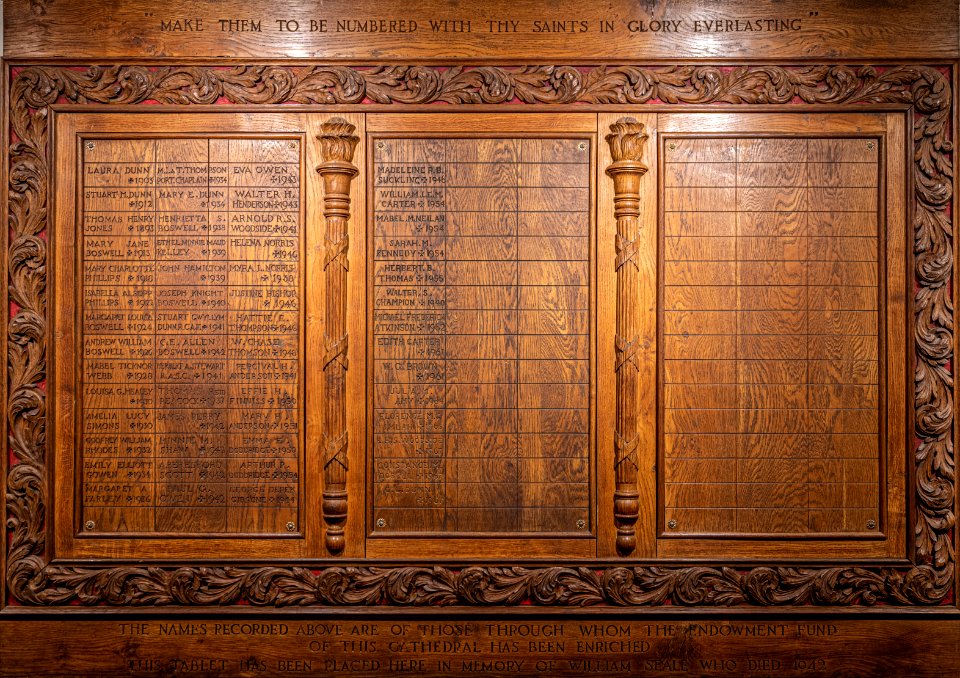 "MAKE THEM TO BE NUMBERED WITH THY SAINTS IN GLORY EVERLASTING"
LAURA DUNN
✠1905
STUART H. DUNN
✠1912
THOMAS HENRY
JONES ✠1893
MARY JANE
BOSWELL ✠1913
MARY CHARLOTTE
PHILLIPS
ISABELLA ALSOPP
PHILLIPS
MARGARET LOUISE
BOSWELL ✠1924
ANDREW WILLIAM
BOSWELL ✠1926
MABEL TICKNOR
WEBB ✠1928
LOUISA G.
✠1930
AMELIA LUCY
SIMONS ✠1930
GODFREY WILLIAM
RHODES ✠1932
EMILY ELLIOTT
GOWEN ✠1934
MARGARET A.
FARLEY ✠1936
M.L.A.T. THOMPSON
PORT CHAPLAIN ✠1934
MARY E. DUNN
✠1934
HENRIETTA S.
BOSWELL ✠1938
ETHEL MINNIE MAUD
KELLEY ✠1939
JOHN HAMILTON
✠1939
JOSEPH KNIGHT
BOSWELL ✠1940
STUART GWYLYM
DUNN R.C.A.F. ✠1941
C.E. ALLEN
BOSWELL ✠1942
STEWART
R.A.S.C. ✠1941
✠1937
JAMES PERRY
✠1942
MINNIE
SHAW ✠1942
SCOTT ✠1942
PAUL G.
OWEN ✠1942
EVA OWEN
✠1943
WALTER H.
HENDERSON ✠1943
ARNOLD R.S.
WOODSIDE ✠1941
HELENA NORRIS
✠1946
MYRA L. NORRIS
JUSTINE BISHOP
✠1946
HATTIE E.
THOMPSON ✠1946
W. CHASE
THOMSON ✠1948
PERCIVAL H.
ANDERSON ✠1941
EFFIE H.
✠1950
MARY H.
ANDERSON ✠1951
EMMA E.
ARTHUR P.
✠1954
MADELEINE R.B.
SUCKLING ✠1946
WILLIAM I.E.M.
CARTER ✠1954
MABEL M. NEILAN
✠1954
SARAH M.
KENNEDY ✠1954
HERBERT B.
THOMAS ✠1956
WALTER S.
CHAMPION
MICHAEL FREDERICK
ATKINSON ✠1962
EDITH CARTER
✠1961
W. G. BROWN
FLORENCE M.
CONSTANCE
THE NAMES RECORDED ABOVE ARE OF THOSE THROUGH WHOM THE ENDOWMENT FUND
OF THIS CATHEDRAL HAS BEEN ENRICHED
THIS TABLET HAS BEEN PLACED HERE IN MEMORY OF WILLIAM SEALE WHO DIED 1942